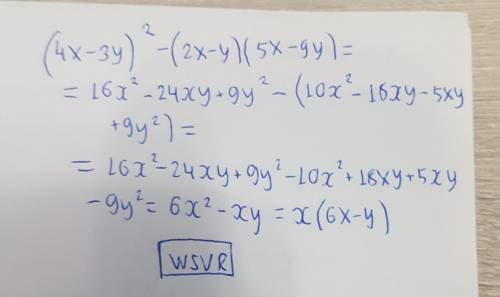 (4x-3y)² -(2x-y)(5x-9y)=
= 16x² -24xy+9y² -(10x² -18xy-5xy
+9y²)=
= 16x²-24xy+9y²-10x²+18xy+5xy
-9y²= 6x²-xy = x(6x-y)
WSVR